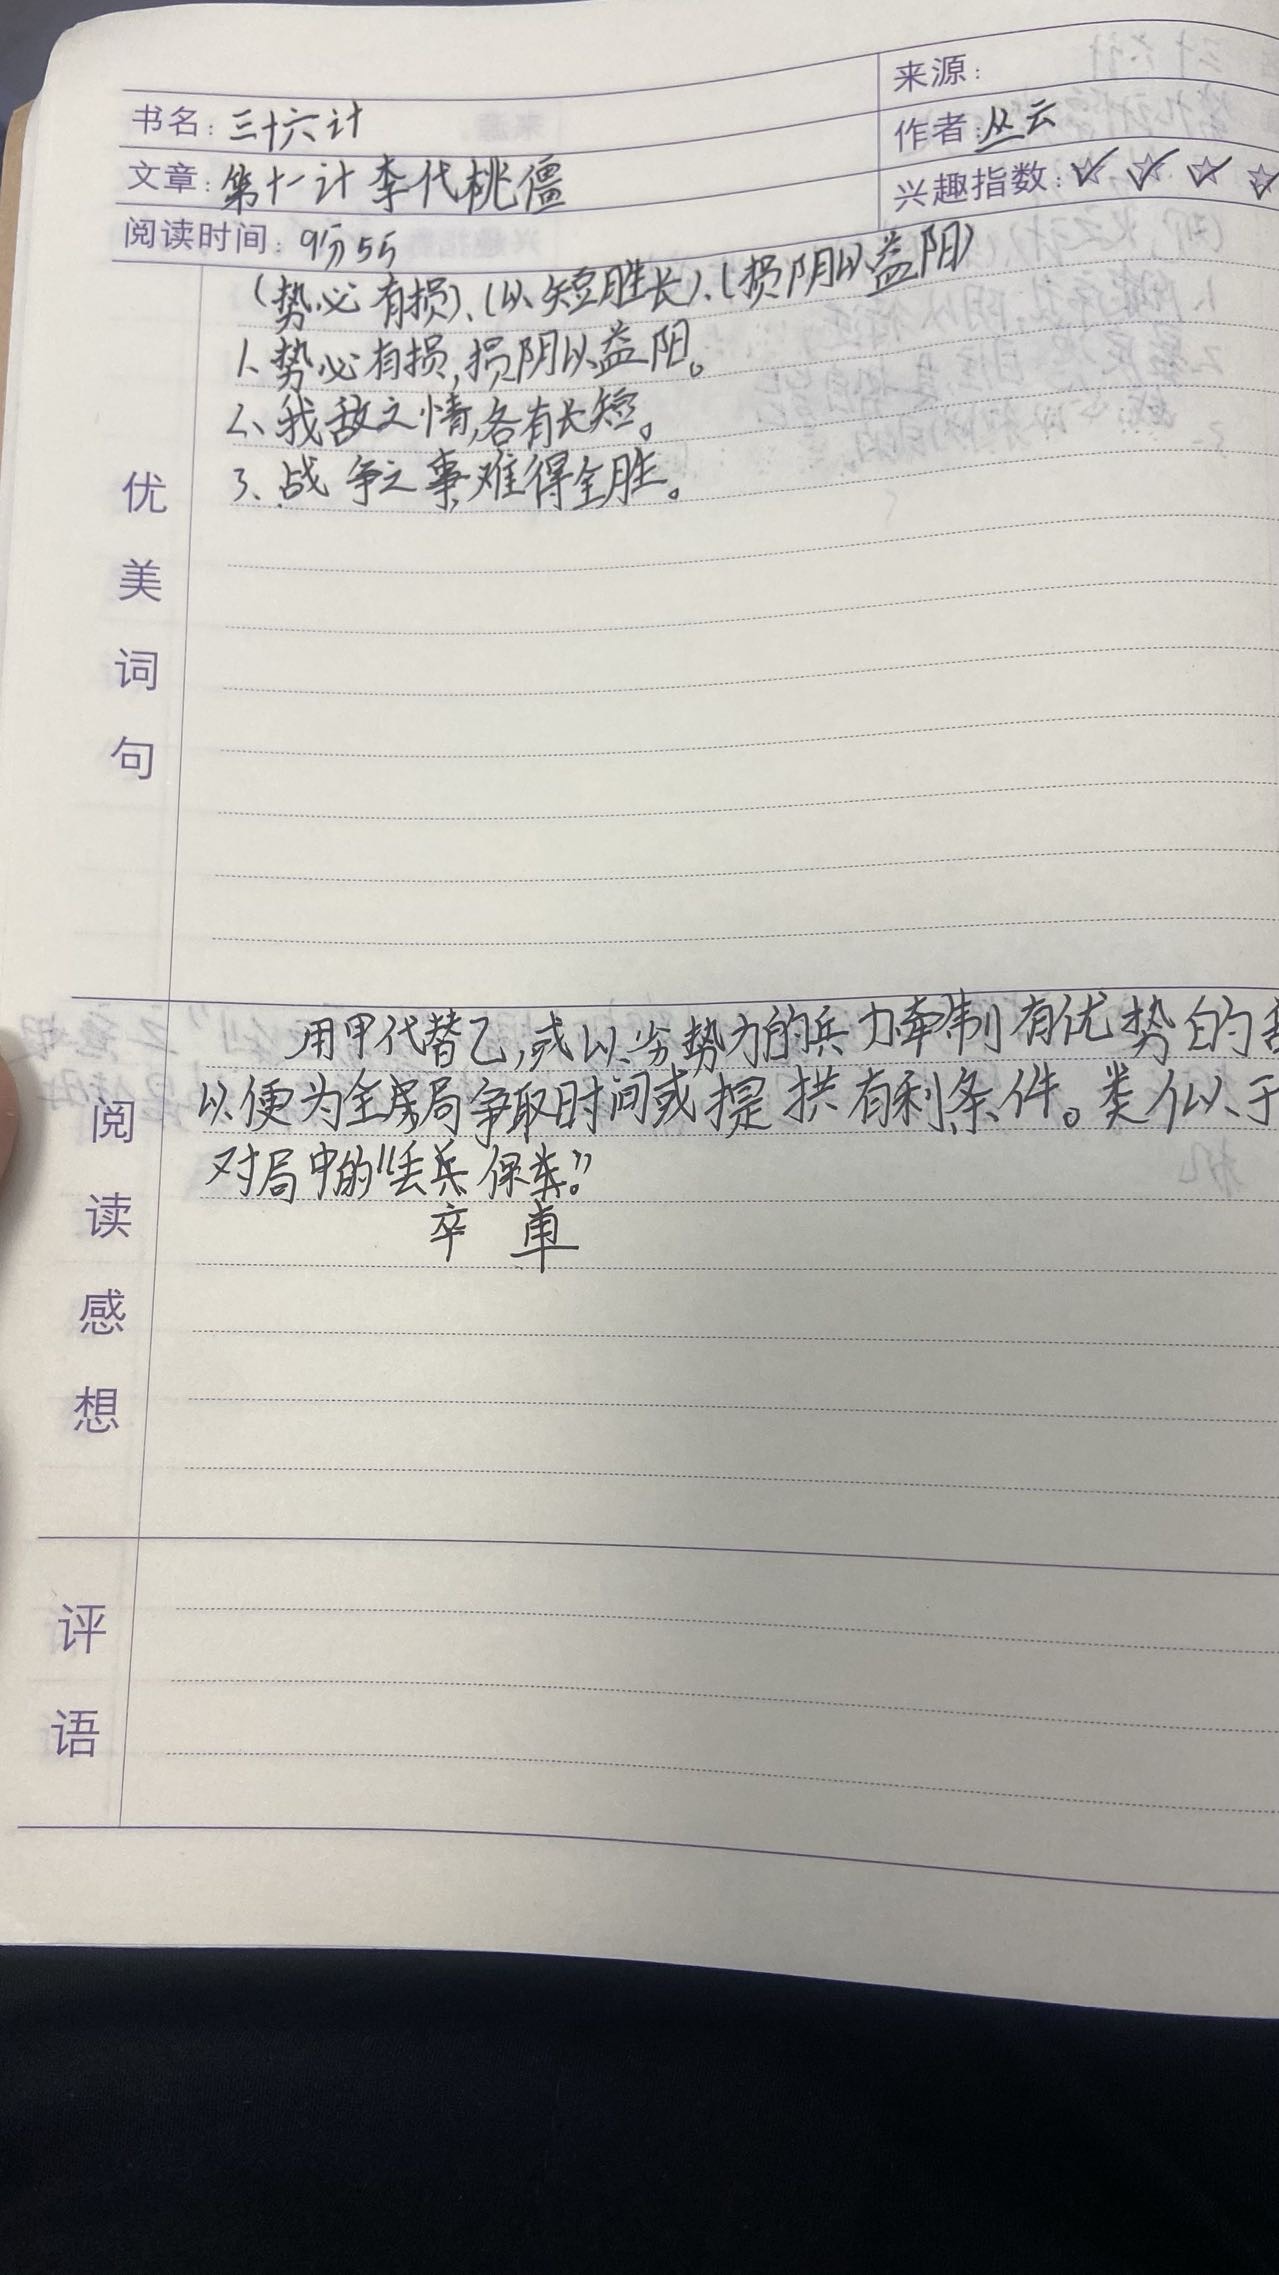 来源:
书名: 三十六计
作者: 丛云
文章: 第十一计 李代桃僵
兴趣指数: ☆ ☆ ☆ ☆
阅读时间: 9分55
(势必有损)、(以短胜长)、(损阴以益阳)
1、势必有损,损阴以益阳。
2、我敌之情,各有长短。
3、战争之事,难得全胜。
优美词句
用甲代替乙,或以劣势力的兵力牵制有优势的
以便为全局争取时间或提拱有利条件。类似于
对局中的“丢兵保车。”
卒 車
阅读感想
评语